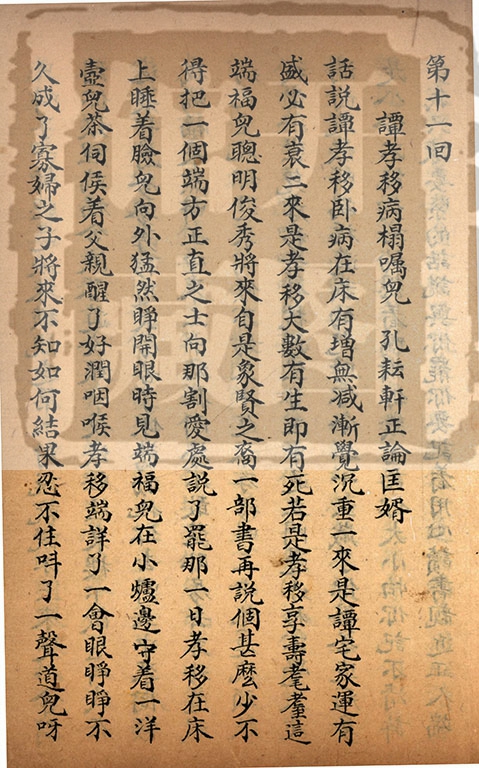 第十一回
譚孝移病榻囑兒 孔耘軒正論匡婿
話說譚孝移卧病在床有增無减漸覺沉重一來是譚宅家運有
盛必有衰二來是孝移大數有生即有死若是孝移享壽耄耋這
端福兒聰明俊秀將來自是象賢之裔一部書再說個甚麽少不
得把一個端方正直之士向那割愛處說了罷那一日孝移在床
上睡着臉兒向外猛然睜開眼時見端福兒在小爐邊守着一洋
壺兒茶伺侯着父親醒了好潤咽喉孝移端詳了一會眼睜睜不
久成了寡婦之子將來不知如何結果忍不住呌了一聲道兒呀